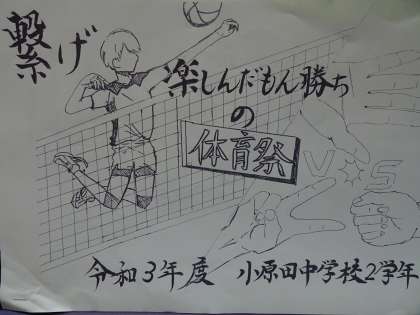 繋げ
楽しんだもん勝ち
の
体育祭
VS
令和3年度 小原田中学校2学年